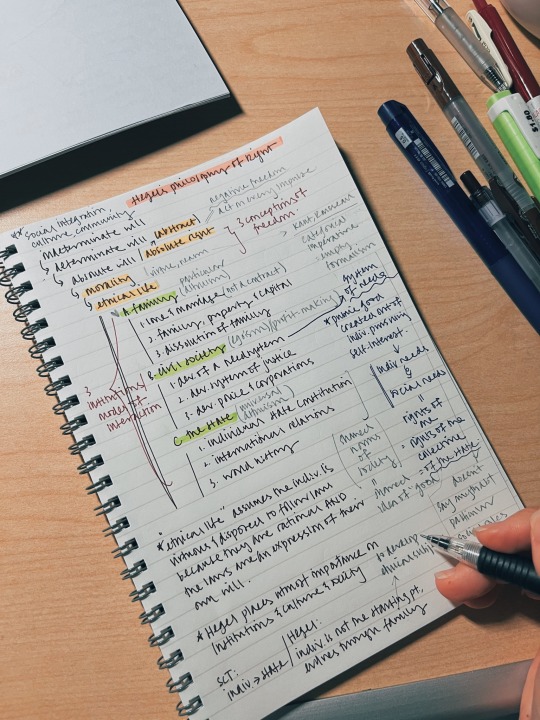 Hegel's philosophy of Right
** social integration,
culture community
indeterminate will
↳ determinate will
↳ absolute will (abstract)
absolute right
negative freedom
act on every impulse
} 3 conceptions of
freedom
↳ morality
↳ ethical life
virtue,
Kant, Rousseau
categorical
imperative
empty
formalism
A. family (particular
altruism)
1. love / marriage (not a contract)
2. family, property & capital
3. dissolution of family
B. civil society (egoism) / profit-making
1. dev. of a need system
2. dev. system of justice
3. dev. police & corporations
C. the state (universal
altruism)
1. individual state constitution
2. international relations
3. world history
3
institutions/
modes of
interaction
system
of needs
* public good
created out of
indiv. pursuing
self-interest.
↓
indiv needs
&
social needs
"
rights of
me
rights of the
collective
of the state
(shared
norms
of
society)
"
shared
idea of good
doesn't
say much abt
particular
* "ethical life" assumes the indiv. is
virtuous & disposed to follow laws
because they are rational AND
the laws are an expression of their
own will.
* Hegel places utmost importance on
institutions & culture & society
to develop
SCT:
indiv. → state
Hegel:
indiv. is not the starting pt,
evolves through family
$1.80